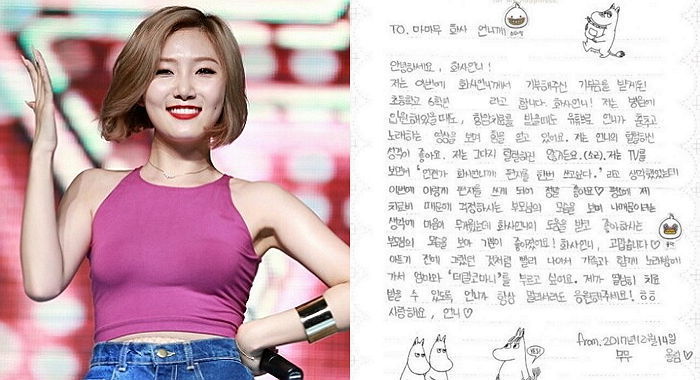 TO. 마마무 화사 언니께
안녕하세요, 화사언니!
저는 이번에 화사언니께서 기부해주신 기부금을 받게된
초등학교 6학년 라고 합니다. 화사언니! 저는 병원에
입원해있을때도, 항암치료를 받을때도 유튜브로 언니가 춤추고
노래하는 영상을 보며 힘을 얻고 있어요. 저는 언니의 털털하신
성격이 좋아요. 저는 그다지 털털하진 않거든요.(소심). 저는 TV를
보면서 '언젠가 화사언니께 편지를 한번 쓰고싶다.' 라고 생각했었는데
이번에 이렇게 편지를 쓰게 되어 정말 좋아요♡ 평소에 제
치료비 때문에 걱정하시는 부모님의 모습을 보며 나때문이라는
생각에 마음이 무거웠는데 화사언니의 도움을 받고 좋아하시는
부모님의 모습을 보아 기분이 좋아졌어요! 화사언니, 고맙습니다♡
아프기 전에 그랬던 것처럼 빨리 나아서 가족과 함께 노래방에
가서 엄마와 '데칼코마니'를 부르고 싶어요. 제가 열심히 치료
받을 수 있도록 언니가 항상 멀리서라도 응원해주세요! ㅎㅎ
사랑해요, 언니♡
from. 2017년 12월 14일
무무 올림